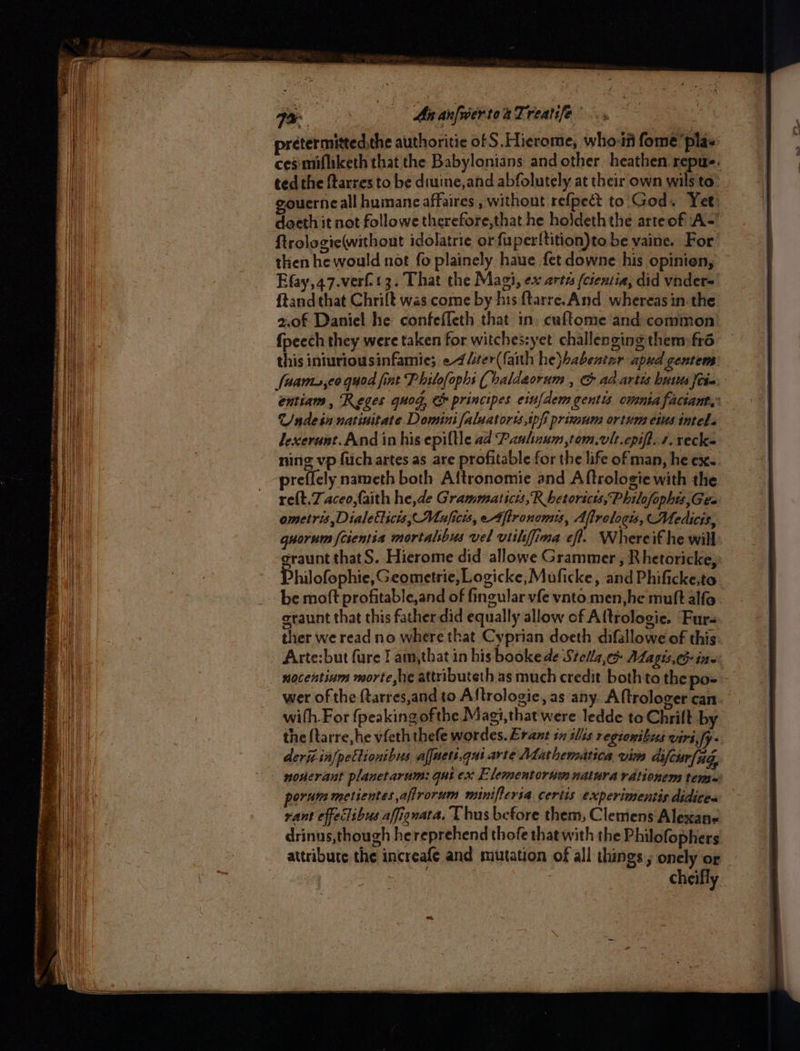 72 An answer to a Treatise
prętermitted, the authoritie of S. Hierome, who in some pla-
ces misliketh that the Babylonians and other heathen repu-
ted the starres to be diuine, and absolutely at their own wils to
gouerne all humane affaires, without respect to God. Yet
doeth it not followe therefore, that he holdeth the arte of A-
strologie (without idolatrie or superstition) to be vaine. For
then he would not so plainely haue set downe his opinion,
Esay, 47. vers. 13. That the Magi, ex artis scientia, did vnder-
stand that Christ was come by his starre. And whereas in the
2. of Daniel he confesseth that in custome and common
speech they were taken for witches: yet challenging them frō
this iniurious infamie; Aliter (saith he) habentur apud gentem
suam, eo quod sint Philosophi Chaldaorum, & ad artis huius sci-
entiam, Reges quoq, & principes eiusdem gentis omnia faciant.
Vnde in natiuitate Domini saluatoris, ipsi primum ortum eius intel-
lexerunt. And in his epistle ad Paulinum, tom. vlt. epist. 1. recko-
ning vp such artes as are profitable for the life of man, he ex-
presslely nameth both Astronomie and Astrologie with the
rest. Taceo, saith he, de Grammaticis, Rhetoricis, Philosophis, Ge-
ometris, Dialecticis, Musicis, Astronomis, Astrologis, Medicis,
quorum scientia mortalibus vel vtilissima est. Where if he will
graunt that S. Hierome did allowe Grammer, Rhetoricke,
Philosophie, Geometrie, Logicke, Musicke, and Phisicke, to
be most profitable, and of singular vse vnto men, he must also
graunt that this father did equally allow of Astrologie. Fur-
ther we read no where that Cyprian doeth disallowe of this
Arte: but sure I am, that in his booke de Stella, & Magis, & in-
nocentium morte, he attributeth as much credit both to the po-
wer of the starres, and to Astrologie, as any Astrologer can
wish. For speaking of the Magi, that were ledde to Christ by
the starre, he vseth these wordes. Erant in illis regionibus viri, sy-
derū inspectionibus assueti, qui arte Mathematica vim discursūq,
nouerant planetarum: qui ex Elementorum natura rationem tem-
porum metientes, astrorum ministeria certis experimentis didice-
rant effectibus assignata. Thus before them, Clemens Alexan-
drinus, though he reprehend those that with the Philosophers
attribute the increase and mutation of all things, onely or
cheifly